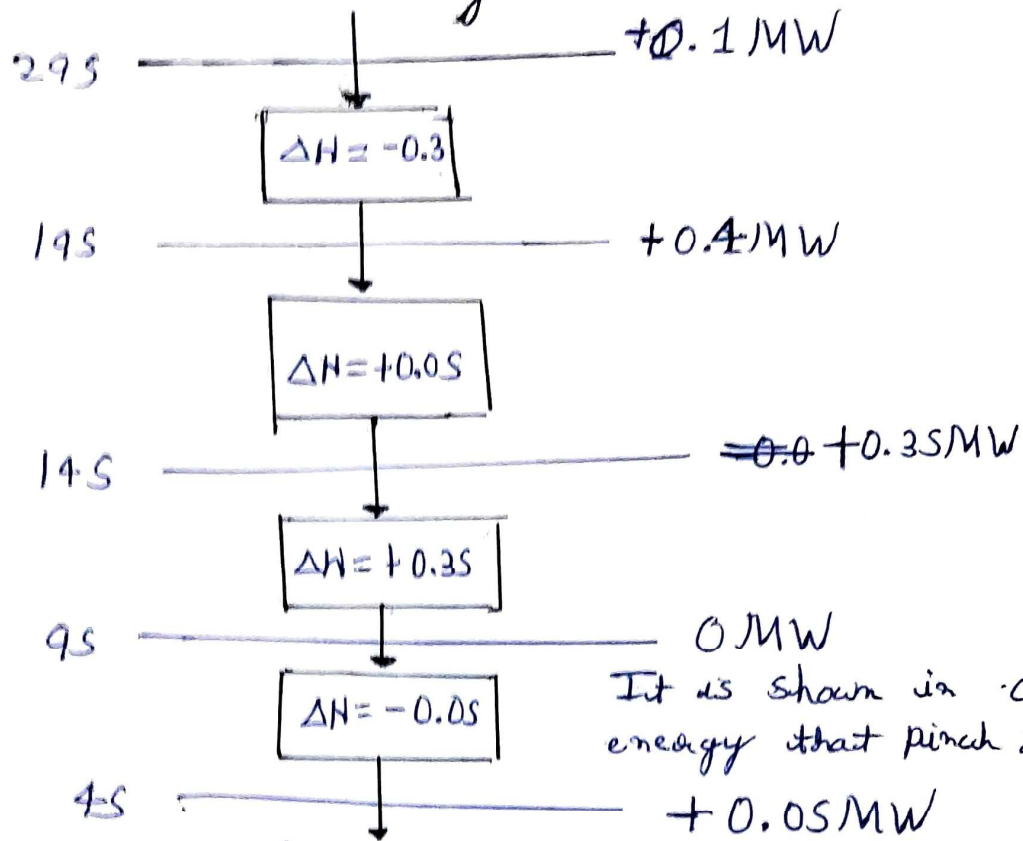 295 +0.1 MW
ΔH = -0.3
195 +0.4 MW
ΔH = +0.05
145 =0.0 +0.35 MW
ΔH = +0.35
95 0 MW
It is shown in
ΔH = -0.05
energy that pinch
45 +0.05 MW